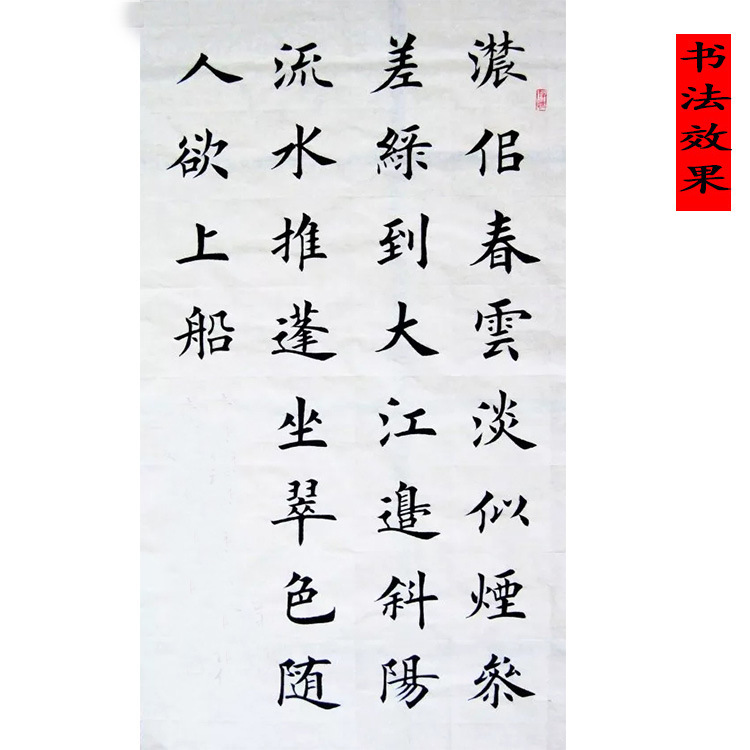 濃佀春雲淡似煙參
差綠到大江邊斜陽
流水推蓬坐翠色随
人欲上船
书法效果